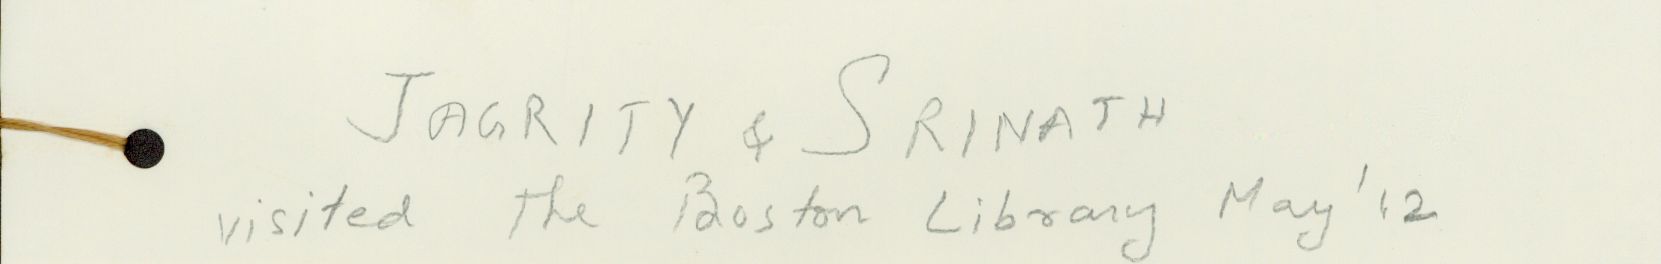 JAGRITY & SRINATH
visited the Boston Library May '12